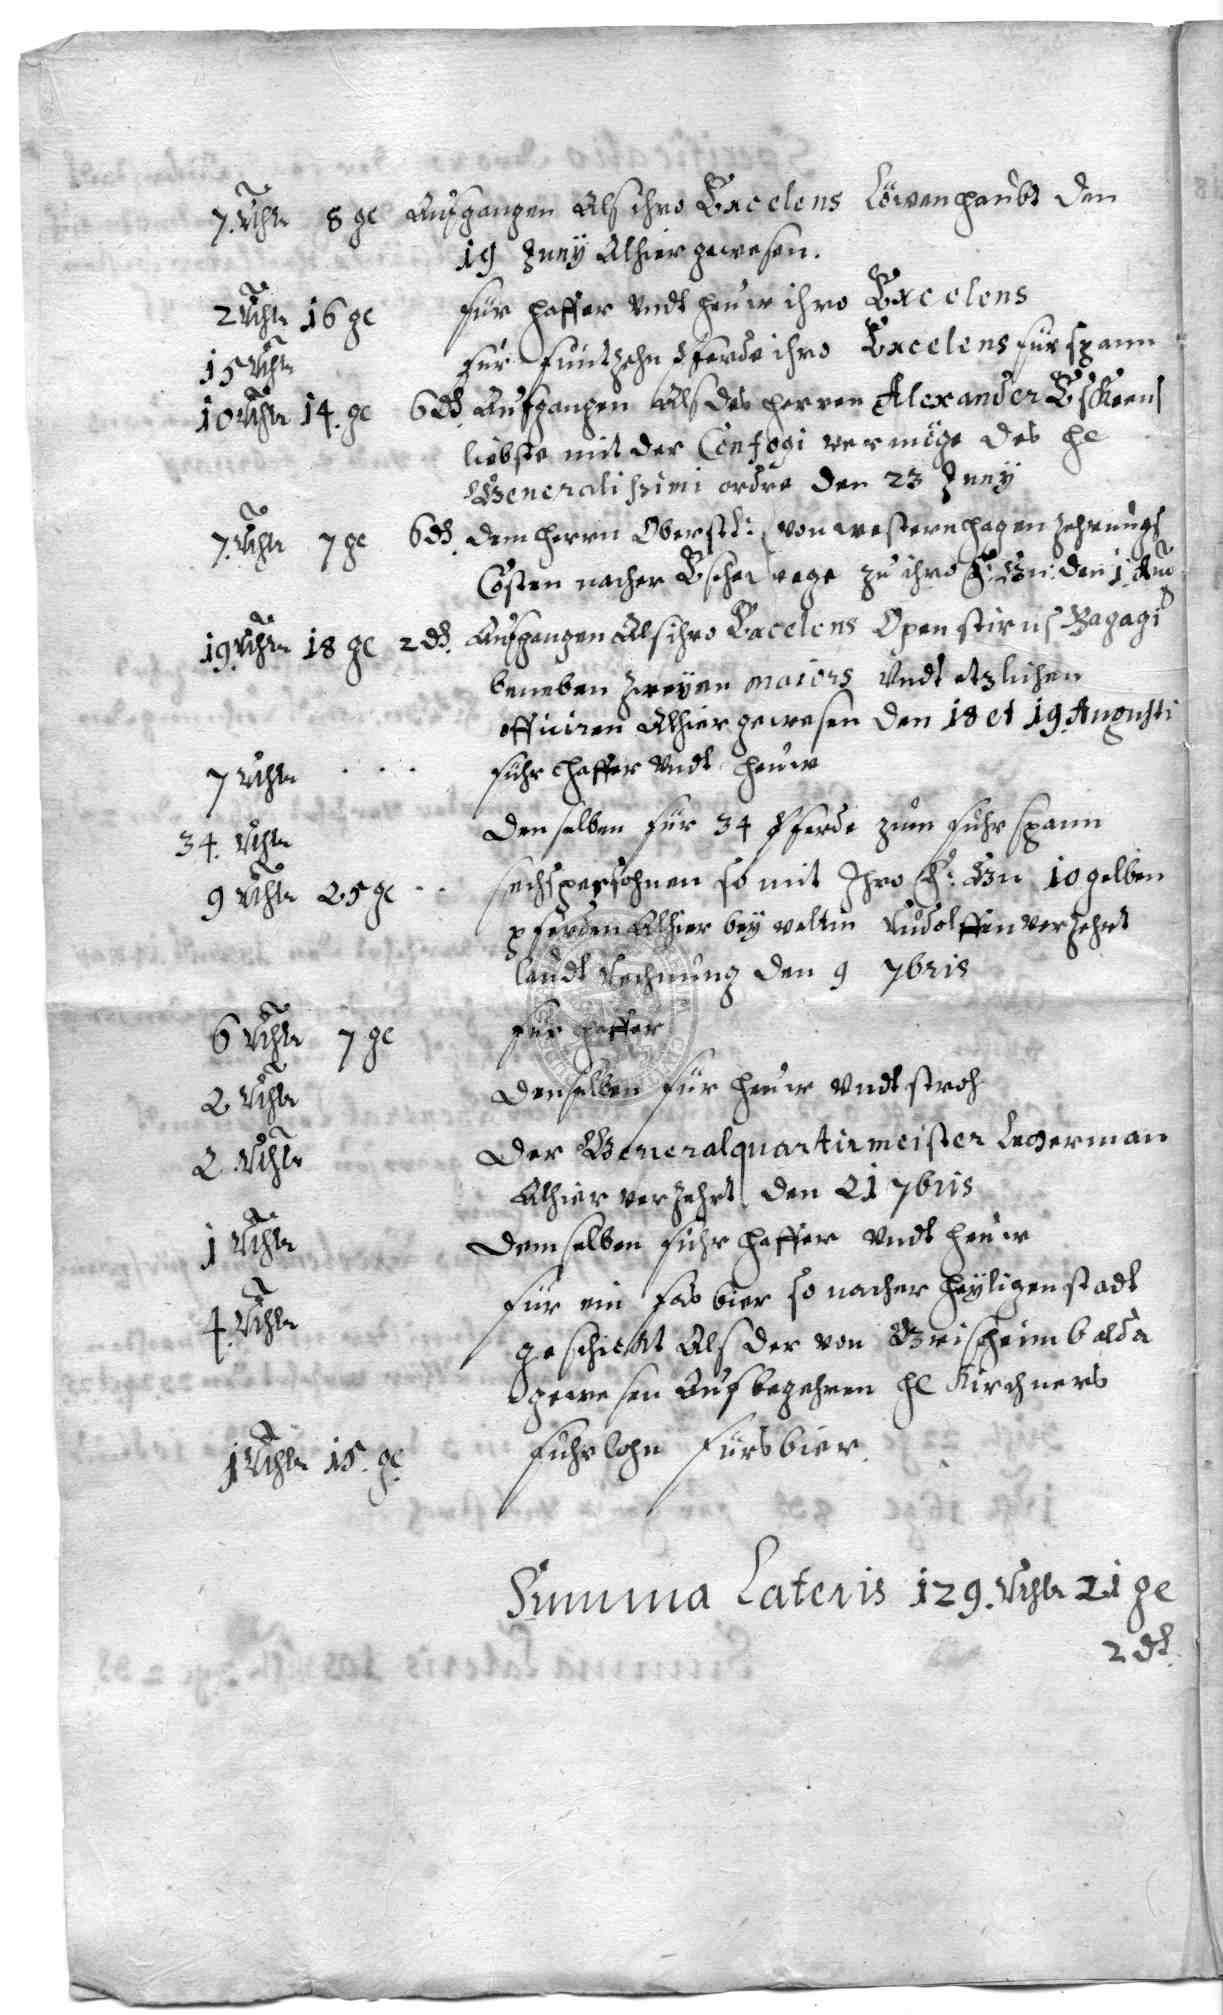 7. Rthlr 8 gc Aufgangen Als ihro Excelens Löwenhaubt den
19 Juny Alhier gewesen.
2 Rthlr 16 gc für haffer undt heuw ihro Excelens
15 Rthlr für funfzehn Pferde ihro Excelens fürspann
10 Rthlr 14. gc 6 d. Aufgangen Als des herren Alexander Esskens
liebste mit der Confogi vermöge des he
Generalissimi ordre den 23 Juny
7. Rthlr 7 gc 6 d. dem herrn Oberstl: von westernhagen zehrungs
Costen nacher Eschewege zu ihro F. Gn: den 1 Aug
19. Rthlr 18 gc 2 d. Aufgangen Als ihro Excelens Openstirns Bagagi
beneben zweyen maiors undt etzlichen
officiren Alhier gewesen den 18 et 19. Augusti
7 Rthlr . . . führ haffer undt heuw
34. Rthlr denselben für 34 Pferde zum fuhrspann
9 Rthlr 25 gc . . sechs persohnen so mit Ihro F: Gn 10 gelben
pferden Alhier bey veltin Rudolffen verzehrt
laudt Rechnung den 9 7bris
6 Rthlr 7 gc für haffer
2 Rthlr denselben für heuw undt stroh
2 Rthlr der Generalquartirmeister Lederman
Alhier verzehrt den 21 7bris
1 Rthlr demselben führ haffer undt heuw
4. Rthlr für ein fas bier so nacher heyligenstadt
geschickt Als der von Griesheim balda
gewesen Auf begehren he Kirchners
1 Rthlr 15. gc fuhrlohn fürs bier.
Summa Lateris 129. Rthlr 21 gc
2 d.